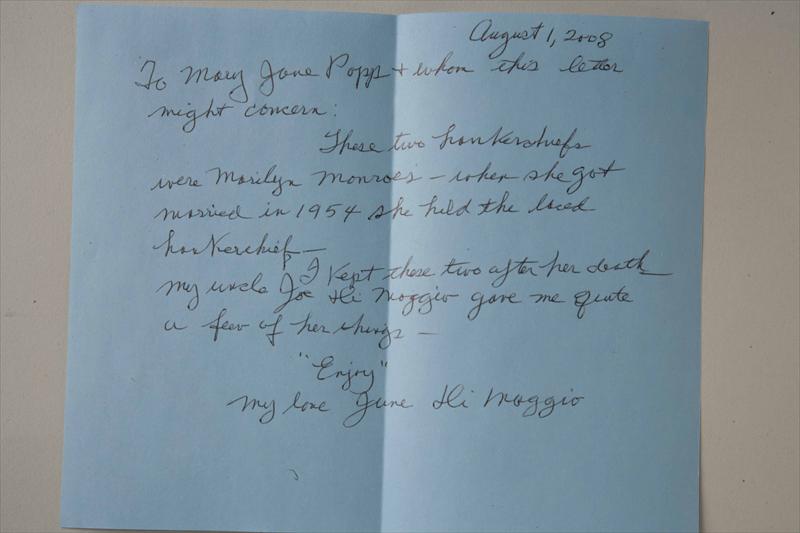 August 1, 2008
To Mary Jane Popp + whom this letter
might concern:
These two hankerchiefs
were Marilyn Monroe's – when she got
married in 1954 she held the laced
hankerchief –
I kept these two after her death
my uncle Joe Di Maggio gave me quite
a few of her things –
"Enjoy"
My love June Di Maggio